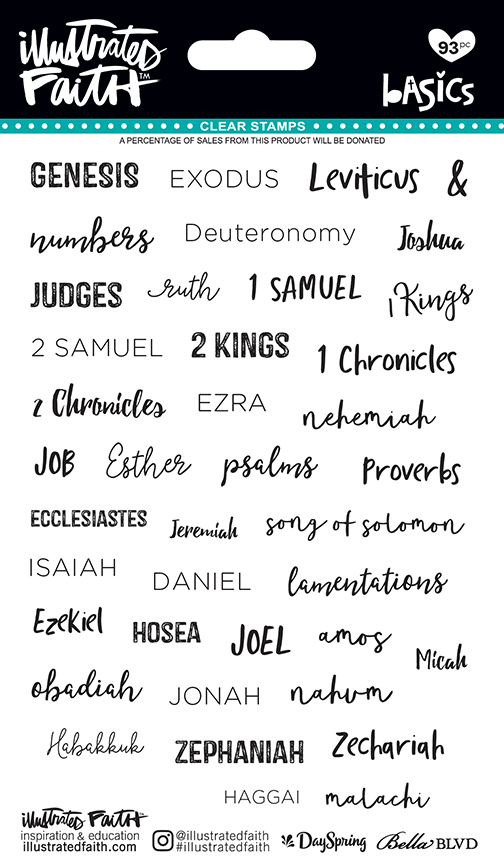 illustrated FAITH™
93pc
basics
CLEAR STAMPS
A PERCENTAGE OF SALES FROM THIS PRODUCT WILL BE DONATED
GENESIS EXODUS Leviticus &
numbers Deuteronomy Joshua
JUDGES ruth 1 SAMUEL 1 Kings
2 SAMUEL 2 KINGS 1 Chronicles
2 Chronicles EZRA nehemiah
JOB Esther psalms Proverbs
ECCLESIASTES Jeremiah song of solomon
ISAIAH DANIEL lamentations
Ezekiel HOSEA JOEL amos Micah
obadiah JONAH nahum
Habakkuk ZEPHANIAH Zechariah
HAGGAI malachi
illustrated FAITH
inspiration & education
illustratedfaith.com
@illustratedfaith
#illustratedfaith
DaySpring
Bella BLVD